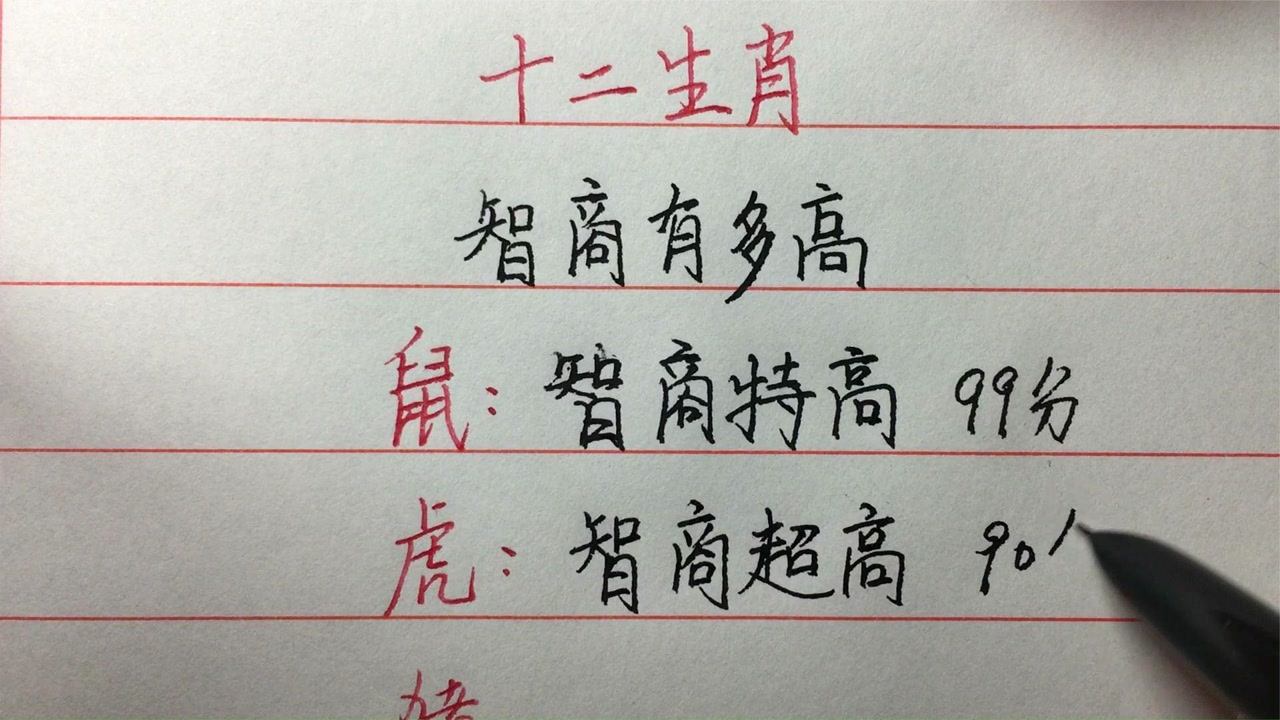 十二生肖
智商有多高
鼠：智商特高 99分
虎：智商超高 90
猪